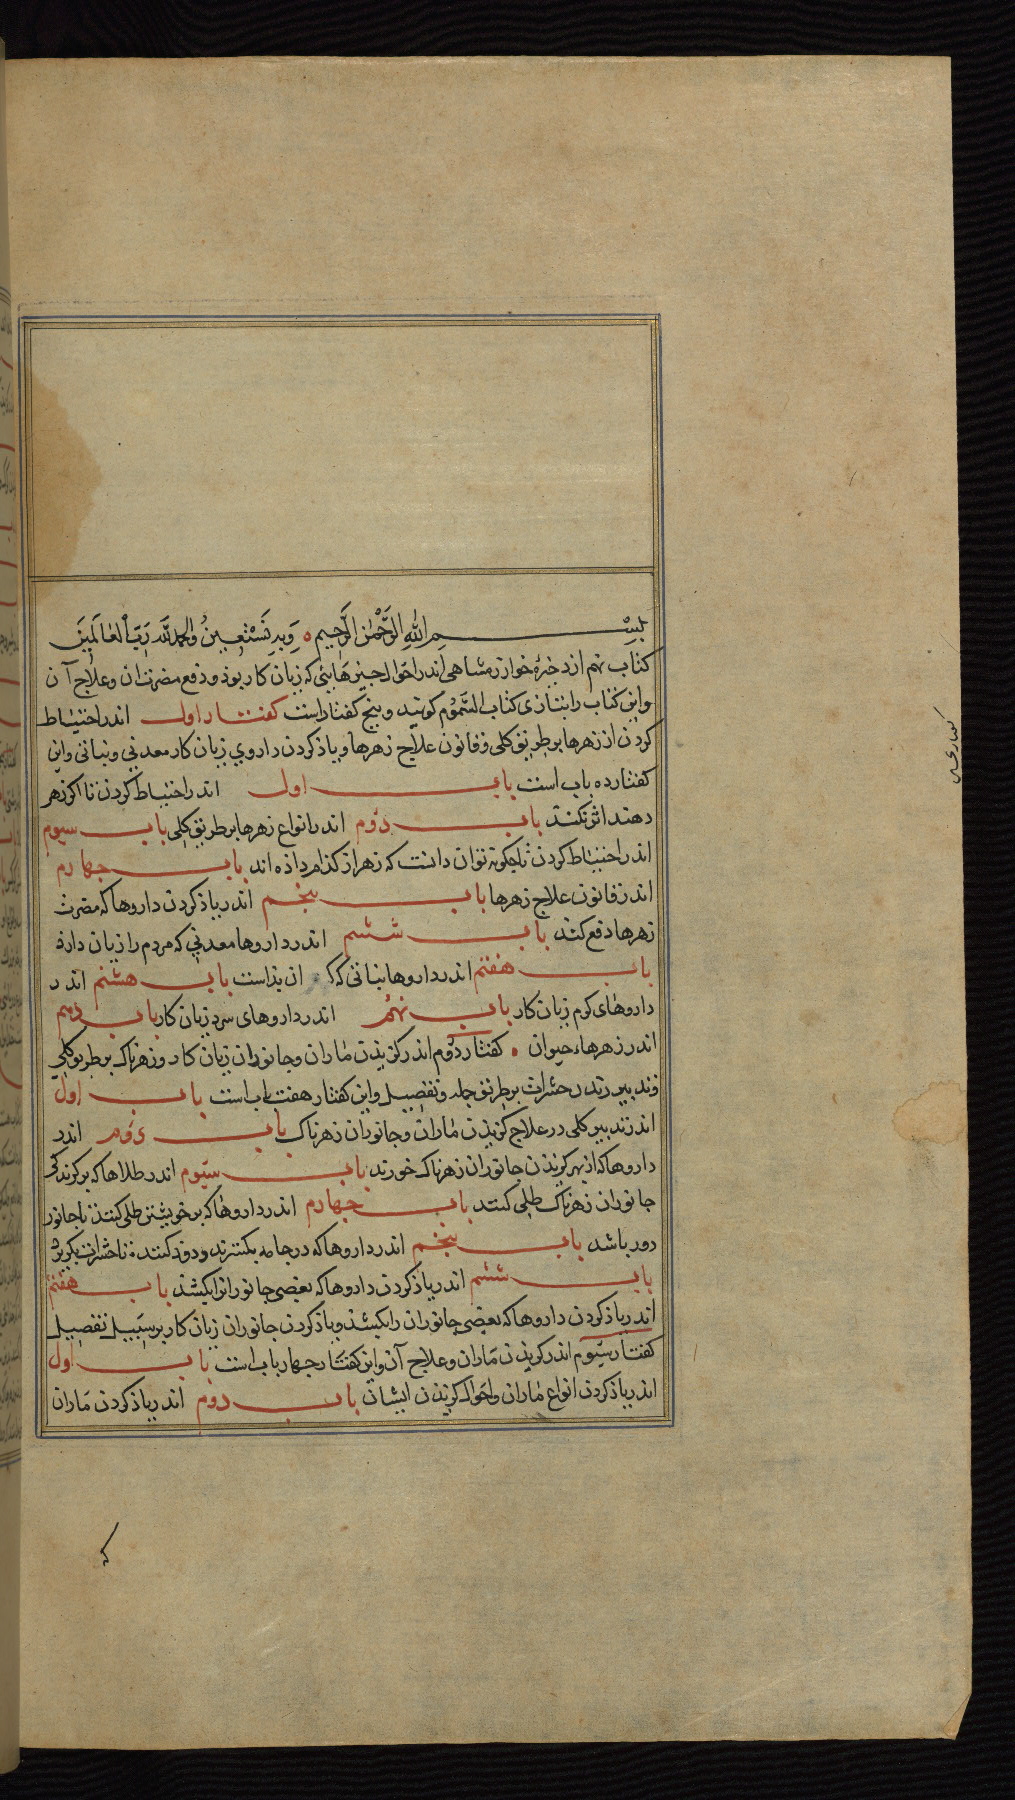 بسم الله الرحمن الرحیم ه وبه نستعین والحمد لله رب العالمین
کتاب نهم از ذخیره خوارزمشاهی اندر احوال جیزهایئی که زیان کار بوذ و دفع مضرت ان وعلاج آن
واین کتاب را بتازی کتاب السموم کویند و بنج کفتار است کفتار اول اندر احتیاط
کردن از زهرها بر طریق کلی و قانون علاج زهرها و یاذ کردن داروی زیان کار معدنی و نباتی واین
کفتار ده باب است باب اول اندر احتیاط کردن تا اکر زهر
دهند اثر نکند باب دوم اندر انواع زهرها بر طریق کلی باب سیوم
اندر احتیاط کردن تا جکونه توان دانست که زهر از کذام داذه اند باب جهارم
اندر قانون علاج زهرها باب بنجم اندر یاذ کردن داروها که مضرت
زهرها دفع کند باب ششم اندر داروها معدنی که مردم را زیان دارذ
باب هفتم اندر داروها نباتی که ان بذ است باب هشتم اندر
داروهای کرم زیان کار باب نهم اندر داروهای سرد زیان کار باب دهم
اندر زهرهاء حیوان ه کفتار دوم اندر کزیذن ماران وجانوران زیان کار و زهرناک بر طریق کلی
وتدبیر حشرات بر طریق جمله وتفصیل واین کفتار هفت باب است باب اول
اندر تدبیر کلی در علاج کزیذن ماران وجانوران زهرناک باب دوم اندر
داروها که از بهر کزیذن جانوران زهرناک خورند باب سیوم اندر طلاها که بر کزندکی
جانوران زهرناک طلی کنند باب جهارم اندر داروها که بر خویشتن طلی کنند تا جانور
دور باشد باب بنجم اندر داروها که در جامه بکسترند و دود کنند تا حشرات بکریزد
باب ششم اندر یاذ کردن داروها که بعضی جانوران را بکشد باب هفتم
اندر یاذ کردن داروها که بعضی جانوران را بکشد و یاذ کردن جانوران زیان کار بر سبیل تفصیل
کفتار سیوم اندر کزیذن ماران وعلاج آن واین کفتار جهار باب است باب اول
اندر یاذ کردن انواع ماران واحوال کزیذن ایشان باب دوم اندر یاذ کردن ماران